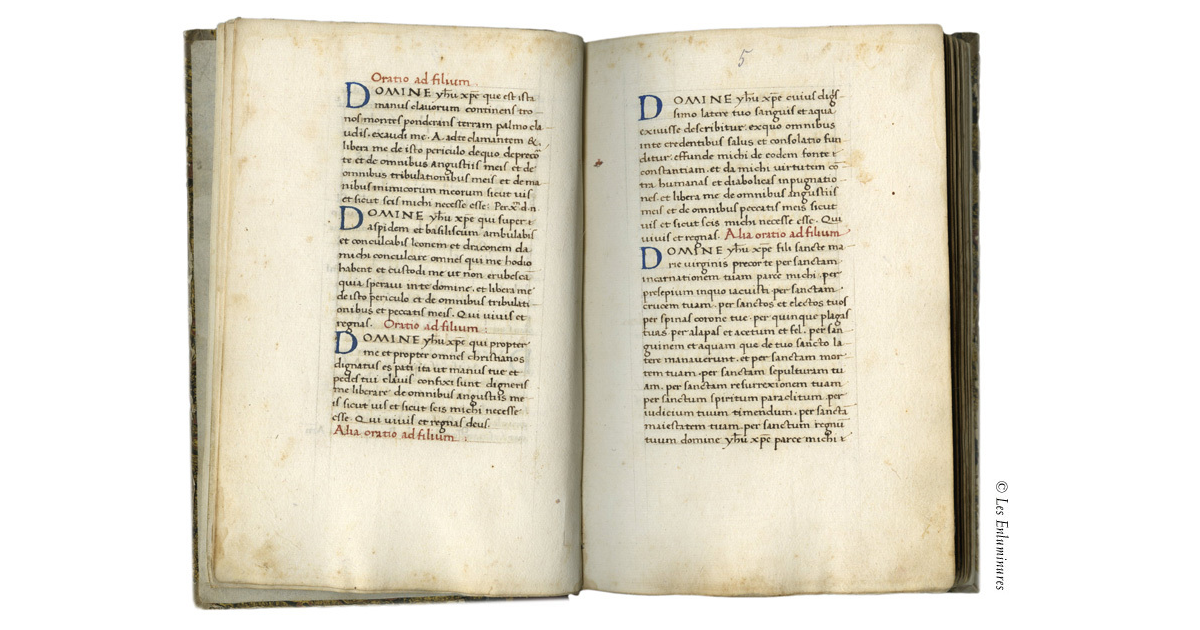 Oratio ad filium
DOMINE yħu xp̄e que est ista
manus clavorum continens tro
nos montes ponderans terram palmo cla
udis. exaudi me. A. adte clamantem &
libera me de isto periculo de quo deprecō
te et de omnibus angustiis meis et de
omnibus tribulationibus meis et de ma
nibus inimicorum meorum sicut vis
et sicut scis michi necesse esse: Per x. d. n.
DOMINE yħu xp̄e qui super
aspidem et basiliscum ambulabis
et conculcabis leonem et draconem da
michi conculcare omnes qui me hodio
habent et custodi me ut non erubescā
quia speravi in te domine. et libera me
de isto periculo et de omnibus tribulati
onibus et peccatis meis. Qui vivis et
regnas. Oratio ad filium :
DOMINE yħu xp̄e qui propter
me et propter omnes christianos
dignatus es pati ita ut manus tue et
pedes tui clavis confixi sunt digneris
me liberare de omnibus angustiis me
is sicut vis et sicut scis michi necesse
esse. Qui vivis et regnas deus.
Alia oratio ad filium :
5
DOMINE yħu xp̄e cuius digs
simo latere tuo sanguis et aqua
exivisse describitur. ex quo omnibus
in te credentibus salus et consolatio fun
ditur. effunde michi de eodem fonte &
constantiam. et da michi virtutem cō
tra humanas et diabolicas inpugnatio
nes. et libera me de omnibus angustiis
meis et de omnibus peccatis meis sicut
vis et sicut scis michi necesse esse. Qui
vivis et regnas. Alia oratio ad filium
DOMINE yħu xp̄e fili sancte ma
rie virginis precor te per sanctam
incarnationem tuam parce michi. per
presepium in quo iacuisti. per sanctam
crucem tuam. per sanctos et electos tuos
per spinas corone tue. per quinque plagas
tuas. per alapas et acetum et fel. per san
guinem et aquam que de tuo sancto la
tere manaverunt. et per sanctam mor
tem tuam. per sanctam sepulturam tu
am. per sanctam resurrexionem tuam
per sanctum spiritum paraclitum. per
iudicium tuum timendum. per sanctā
maiestatem tuam. per sanctum regnū
tuum domine yħu xp̄e parce michi &
© Les Enluminures